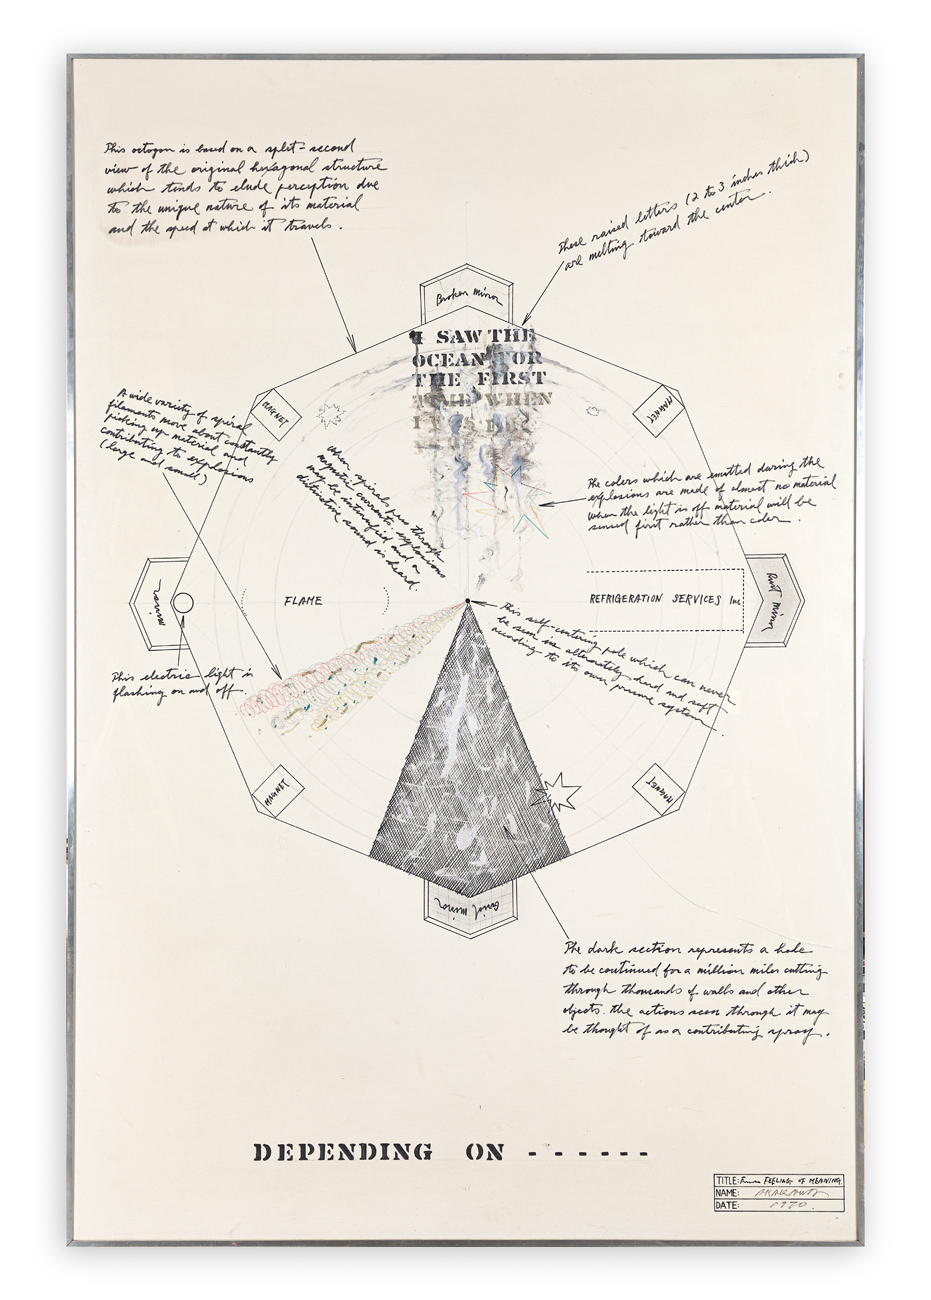 This octogon is based on a split-second
view of the original hexagonal structure
which tends to elude perception due
to the unique nature of its material
and the speed at which it travels.
These raised letters (2 to 3 inches thick)
are melting toward the center.
Broken Mirror
I SAW THE
OCEAN FOR
THE FIRST
TIME WHEN
I
MAGNET
MAGNET
A wide variety of spiral
filaments move about constantly
picking up material and
contributing to explosions
(large and small)
When spirals pass through
magnetic currents, explosions
may be intensified and a
distinctive sound is heard.
The colors which are emitted during the
explosions are made of almost no material
when the light is off material will be
sensed first rather than color.
mirror
FLAME
REFRIGERATION SERVICES Inc
mirror
This self-centering pole which can never
be seen is alternately hard and soft
according to its own pressure system
This electric light is
flashing on and off.
MAGNET
MAGNET
Grid mirror
The dark section represents a hole
to be continued for a million miles cutting
through thousands of walls and other
objects. The actions seen through it may
be thought of as a contributing spray.
DEPENDING ON ------
TITLE: FEELING OF MEANING
NAME: ARAKAWA
DATE: 1970.